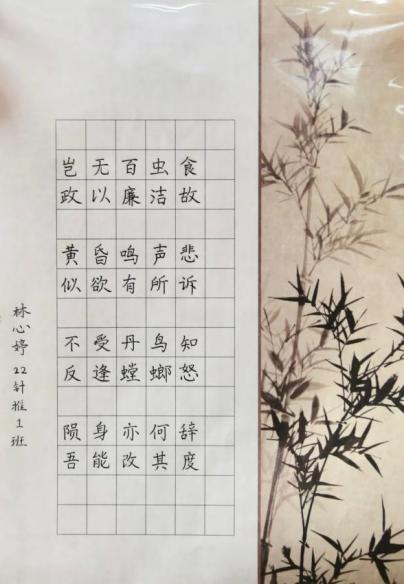 岂无百虫食
政以廉洁故
黄昏鸣声悲
似欲有所诉
不受丹鸟知
反逢螳螂怒
陨身亦何辞
吾能改其度
林心婷22针推1班